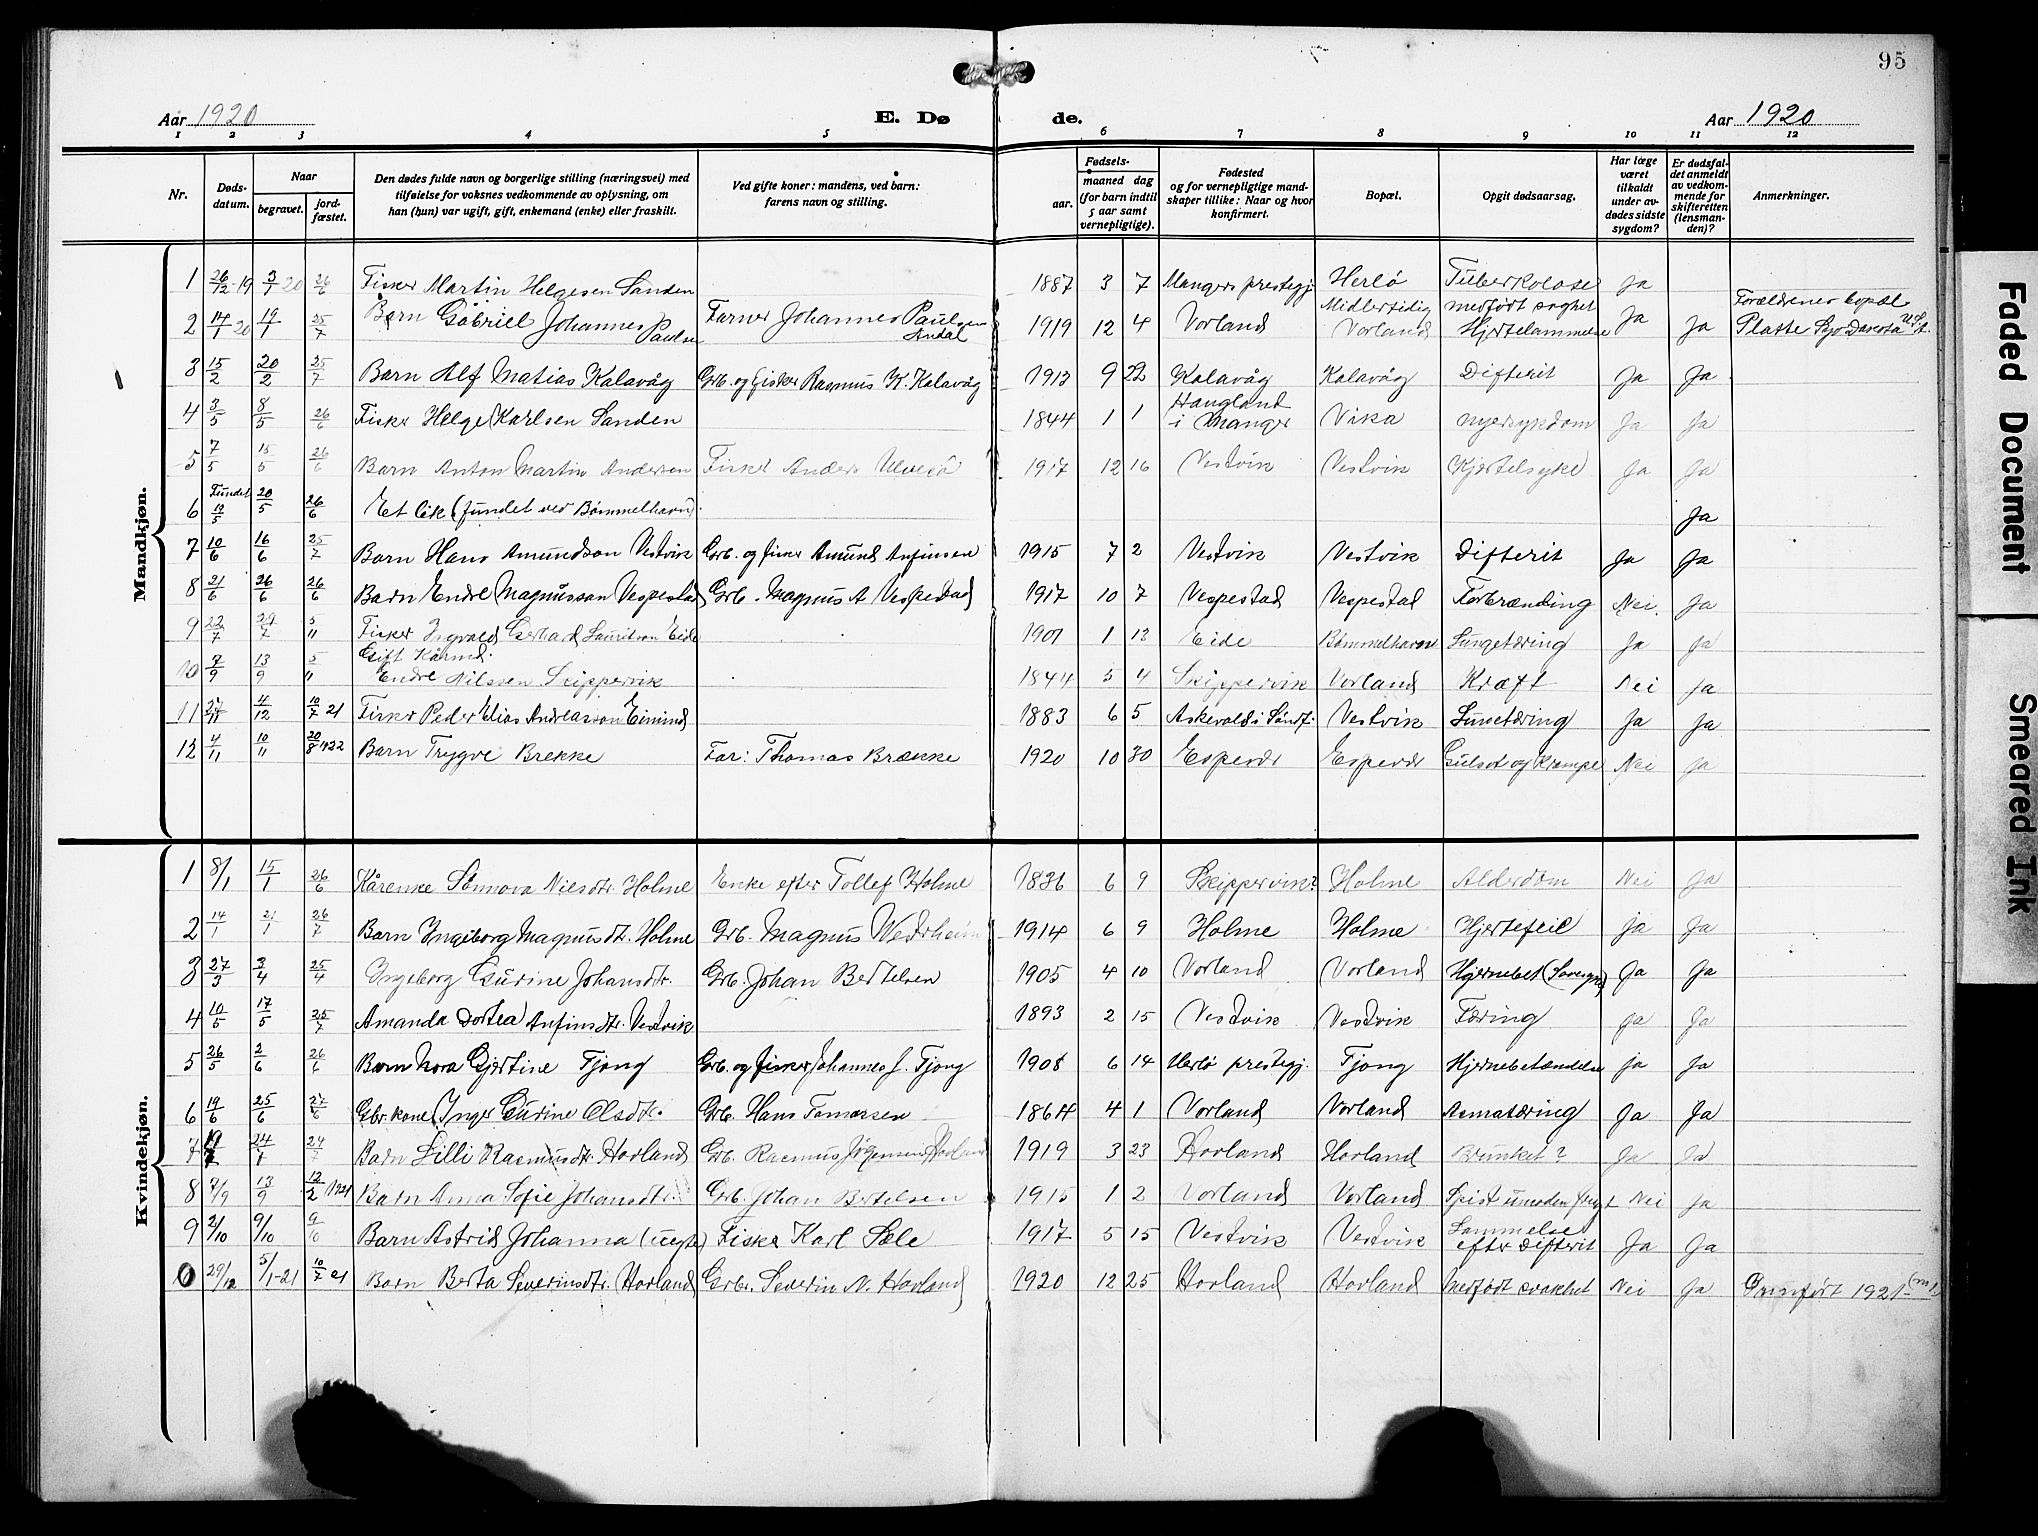 95
Aar 1920 E. Dø de. Aar 1920
1 2 3 4 5 6 7 8 9 10 11 12
Nr. Døds-datum. Naar begravet. jord-fæstet. Den dødes fulde navn og borgerlige stilling (næringsvei) med tilføielse for voksnes vedkommende av oplysning, om han (hun) var ugift, gift, enkemand (enke) eller fraskilt. Ved gifte koner: mandens, ved barn: farens navn og stilling. Fødsels- aar. maaned dag (for barn indtil 5 aar samt vernepligtige). Fødested og for vernepligtige mandskaper tillike: Naar og hvor konfirmert. Bopæl. Opgit dødsaarsag. Har læge været tilkaldt under avdødes sidste sygdom? Er dødsfaldet anmeldt av vedkommende for skifteretten (lensmanden)? Anmerkninger.
Mandkjøn.
1 26/12-19 3/1 20 26/6 Fisker Martin Helgesen Sanden 1887 3 7 Mangers prestegj. Herlø Tuberkolose Ja
2 14/1 20 19/1 25/7 Barn Gabriel Johannes Paulsen Farner Johannes Paulsen 1919 12 4 Vorland Midlertidig Vorland medfødt svaghet Hjertelammelse Ja Ja Forældrenes bopæl Platte So Dakota U.S.
3 15/2 20/2 25/7 Barn Alf Matias Kalavåg Grb. og fisker Rasmus K. Kalavåg 1913 9 22 Kalavåg Kalavåg Difterit Ja Ja
4 3/5 8/5 26/6 Fisker Helge Karlsen Sanden 1844 1 1 Haugland i Manger Vika nyresykdom Ja Ja
5 7/5 15/5 26/6 Barn Anton Martin Andersen Fisker Anders Ulvesø 1917 12 16 Vestvik Vestvik Kjertelsyke Ja Ja
6 Fundet 10/5 20/5 26/6 Et lik (fundet ved Bømmelhavn). Ja
7 10/6 16/6 25/7 Barn Hans Amundson Vestvik Grb. og fisker Amund Anfinsen 1915 7 2 Vestvik Vestvik Difterit Ja Ja
8 21/6 26/6 26/6 Barn Endre Magnusson Vespestad Grb. Magnus A Vespestad 1917 10 7 Vespestad Vespestad Forbrænding Nei. Ja
9 22/7 29/7 5/11 Fisker Ingvald Gerhard Lauritson Eide 1901 1 13 Eide Bømmelhavn Lungetæring Ja Ja
10 7/9 13/9 5/11 Gift Kårmd. Endre Nilssen Skippervik 1844 5 4 Skippervik Vorland Kræft Nei Ja
11 27/11 4/12 10/7 21 Fisker Peder Elias Andreasson Eimind 1883 6 5 Askevold i Søndf. Vestvik Lunetæring Ja Ja
12 4/11 10/11 20/8 1922 Barn Trygve Brekke Far: Thomas Brække 1920 10 30 Espevær Espevær Gulsot og Krampe Nei Ja
Kvindekjøn.
1 8/1 15/1 26/6 Kårenke Sønnova Nielsdtr. Holme Enke efter Tollef Holme 1836 6 9 Skippervik? Holme Alderdom Nei Ja
2 14/1 21/1 26/7 Barn Ingeborg Magnusdtr. Holme Grb. Magnus Wedrheim 1914 6 9 Holme Holme Hjertefeil Ja Ja
3 27/3 3/4 25/4 Ingeborg Gurine Johansdtr. Grb. Johan Bertelsen 1905 4 10 Vorland Vorland Hjernebet. Ja Ja
4 10/5 17/5 25/7 Amanda Dortea Anfinsdtr. Vestvik 1893 2 15 Vestvik Vestvik Tæring Ja Ja
5 26/5 2/6 26/6 Barn Nora Gjertine Fjong Grb. og fisker Johannes J. Fjong 1908 6 14 Herlø prestegj. Fjong Hjernebetændelse Ja Ja
6 19/6 25/6 27/6 Gbr. kone Inger Gurine Olsdtr. Grb. Hans Tomassen 1864 4 1 Vorland Vorland Asmatæring Ja Ja
7 24/7 Barn Lilli Rasmusdtr. Hovland Grb. Rasmus Jørgensen Hovland 1919 3 23 Hovland Hovland Brunket? Ja Ja
8 7/9 13/9 12/2 1921 Barn Anna Sofie Johansdtr. Grb. Johan Bertelsen 1915 1 2 Vorland Vorland Spist umoden frugt Nei Ja
9 2/10 9/10 9/10 Barn Astrid Johanna (uegte) Fisker Karl Sæle 1917 5 15 Vestvik Vestvik Lammelse efter Difterit Ja Ja
10 29/12 5/1-21 10/7 21 Barn Berta Severinsdtr. Hovland Grbr. Severin N. Hovland 1920 12 25 Hovland Hovland Medfødt svakhet Nei Ja Omført 1921
Faded Document
Smeared Ink